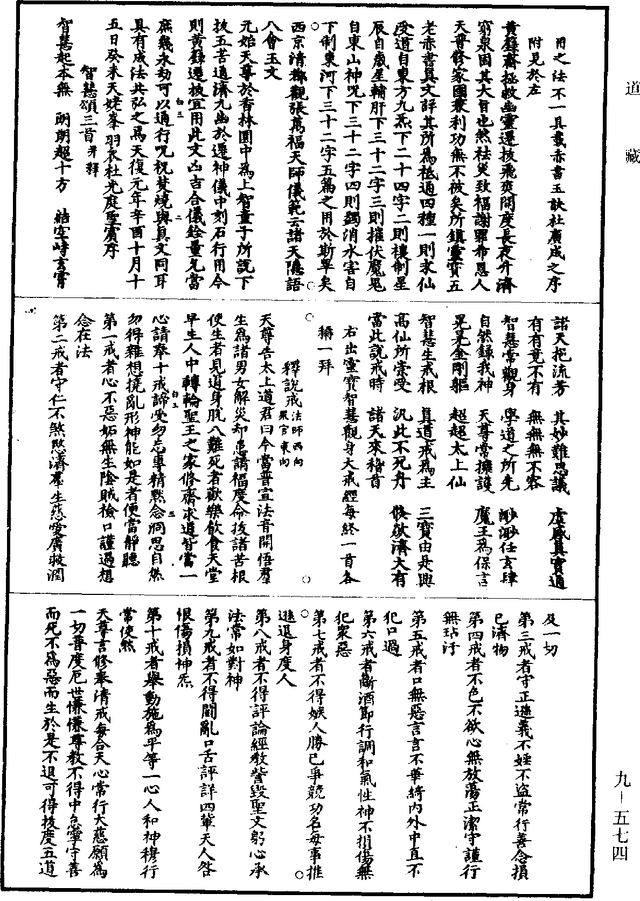 道藏
用之法不一具載赤書玉訣杜廣成之序
附見於左
黃籙齋拯救幽靈遷拔飛爽開度長夜升濟
窮泉固其大旨也然祛災致福謝罪希恩人
天尊修家國兼利功無不被矣所鎮靈寶五
老赤書真文詳其所爲祗通四種一則求仙
度道自東方九炁下二十四字二則樓制星
辰自歲星輔肝下三十二字三則摧伏魔鬼
自東山神咒下三十二字四則蠲消水害自
下制東河下三十二字五篇之用於斯畢矣
西京清都觀張萬福天師儀範云諸天隱語
八會玉文
元始天尊於香林園中爲上智童子所說下
拔五苦通濟九幽於遷神儀中刻石行用今
則黃籙遷拔宜用此文凶吉合儀齡量允當
庶幾永劫可以通行咒祝焚燒與真文同耳
具有成法共弘之焉天復元年辛酉十月十
五日癸未天姥峯羽衣杜光庭聖賓序
智慧頌三首并釋
智慧起本無 朗朗超十方 結空峙玄霄
諸天挹流芳 其妙難思議 虛感真實通
有有竟不有 無無無不容
智慧常觀身 學道之所先 渺渺任玄肆
自然錄我神 天尊常擁護 魔王爲保言
晃晃金剛軀 超超太上仙
智慧生戒根 真道戒爲主 三寶由是興
高仙所崇受 汎此不死舟 倏歘濟大有
當此說戒時 諸天來稽首
右出靈寶智慧觀身大戒經每終一首各
稱一拜
釋說戒法師西向衆官東向
天尊告太上道君曰今當普宣法音開悟羣
生爲諸男女解災却患請福度命拔諸苦根
使生者見道身脫八難死者歡樂飲食天堂
早生人中轉輪聖王之家修齋求道皆當一
心請奉十戒諦受勿忘專精默念洞思自然
勿得雜想撓亂形神能如是者便當靜聽
第一戒者心不惡妬無生陰賊檢口謹過想
念在法
第二戒者守仁不煞愍濟羣生慈愛廣救潤
及一切
第三戒者守正遜義不婬不盜常行善念損
己濟物
第四戒者不色不欲心無放蕩正潔守謹行
無玷汙
第五戒者口無惡言言不華綺内外中直不
犯口過
第六戒者斷酒節行調和氣性神不損傷無
犯衆惡
第七戒者不得嫉人勝己爭競功名每事推
遜退身度人
第八戒者不得評論經教訾毀聖文躬心承
法常如對神
第九戒者不得鬭亂口舌評詳四輩天人咎
恨傷損神炁
第十戒者舉動施爲平等一心人和神穆行
常使然
天尊言修奉清戒每合天心常行大慈願爲
一切普度厄世慊慊尊教不得中怠寧守善
而死不爲惡而生於是不退可得拔度五道
九-五七四